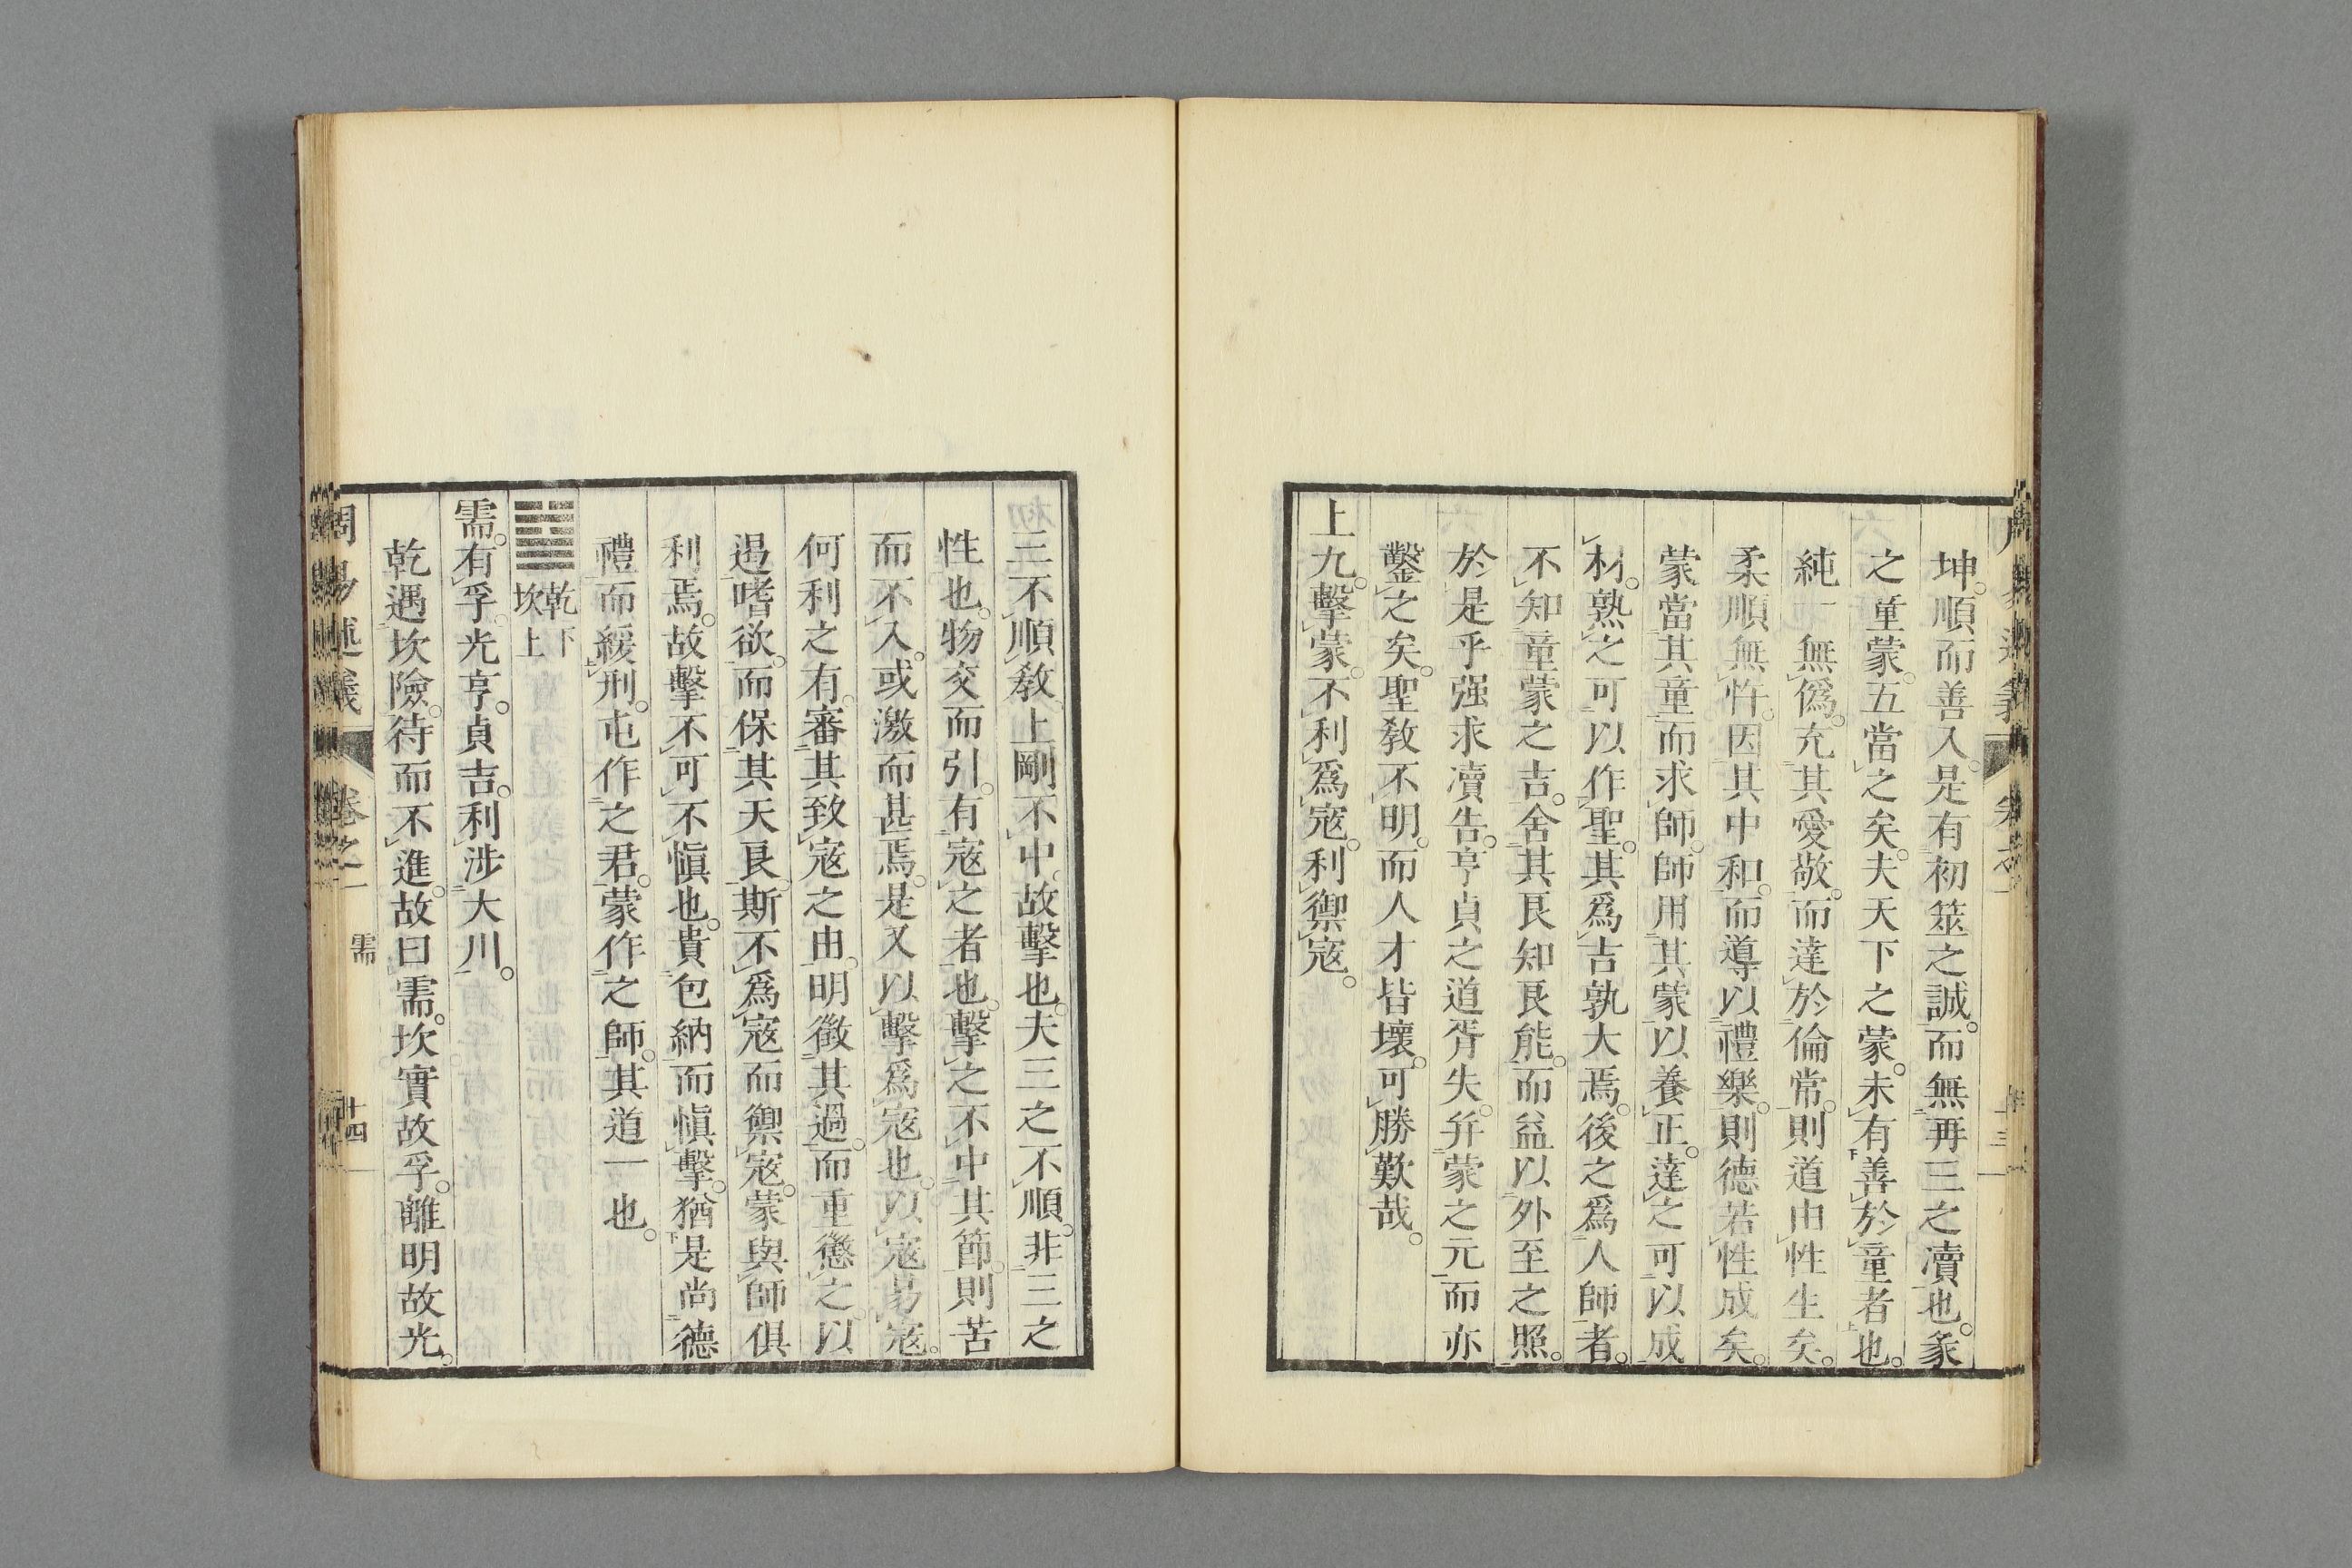 坤。順而善入。是有初筮之誠。而無再三之瀆也。彖
之童蒙。五當之矣。夫天下之蒙。未有善於童者也。
純一無僞。充其愛敬。而達於倫常。則道由性生矣。
柔順無忤。因其中和。而導以禮樂。則德若性成矣。
蒙當其童而求師。師用其蒙以養正。達之可以成
材。熟之可以作聖。其爲吉孰大焉。後之爲人師者。
不知童蒙之吉。舍其良知良能。而益以外至之照。
於是乎强求瀆告。亨貞之道胥失。幷蒙之元而亦
鑿之矣。聖敎不明。而人才皆壞。可勝歎哉。
上九。擊蒙。不利爲寇。利禦寇。
三不順敎。上剛不中。故擊也。夫三之不順。非三之
性也。物交而引。有寇之者也。擊之不中其節。則苦
而不入。或激而甚焉。是又以擊爲寇也。以寇易寇。
何利之有。審其致寇之由。明徵其過。而重懲之。以
遏嗜欲。而保其天良。斯不爲寇而禦寇。蒙與師俱
利焉。故擊不可不愼也。貴包納而愼擊。猶是尚德
禮而緩刑。屯作之君。蒙作之師。其道一也。
乾下
坎上
需。有孚。光亨。貞吉。利涉大川。
乾遇坎險。待而不進。故曰需。坎實故孚。離明故光。
周易述義 卷之一 需 十四